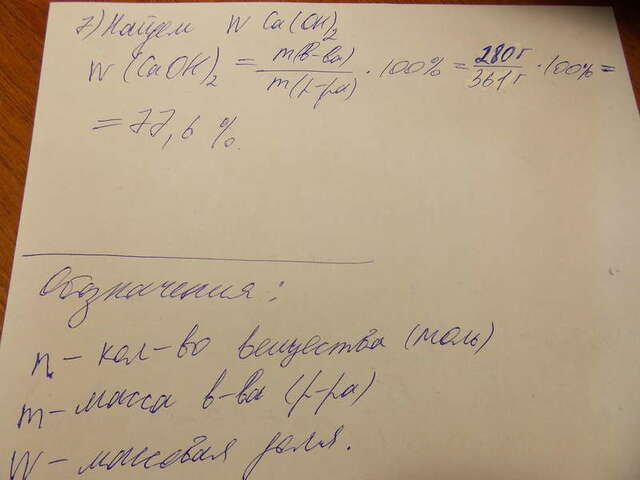 7) Найдем W Ca(OH)₂
W (CaOH)₂ = m(в-ва) / m(р-ра) · 100% = 280г / 361г · 100% =
= 77,6 %.
Обозначения:
n - кол-во вещества (моль)
m - масса в-ва (р-ра)
W - массовая доля.